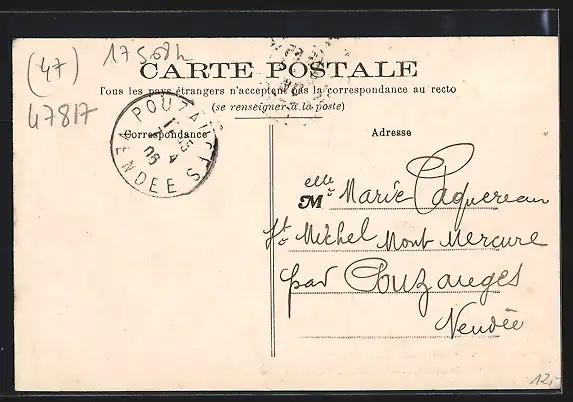 (47)
17508h
47817
CARTE POSTALE
Tous les pays étrangers n'acceptent pas la correspondance au recto
(se renseigner à la poste)
Correspondance
Adresse
POUZAUGES
VENDEE
Melle Marie Caquereau
St Michel Mont Mercure
par Pouzauges
Vendée
12,-